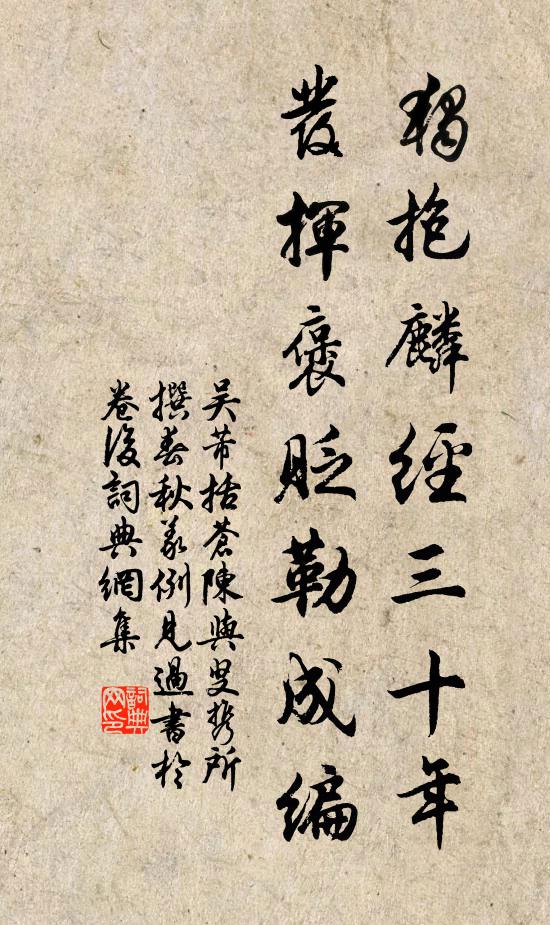 獨抱麟經三十年
發揮褒貶勒成編
吳芾括蒼陳與叟携所
撰春秋義例見過書於
卷後詞典網集
詞典
网印